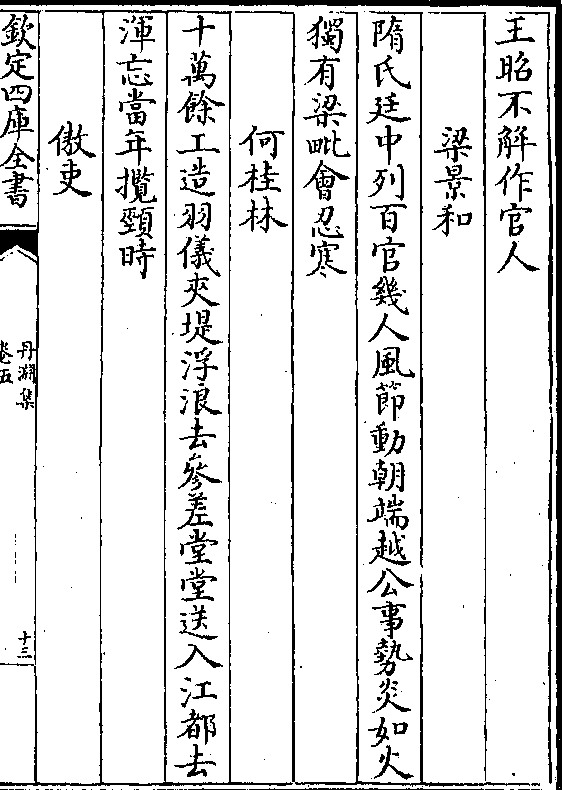 王昭不解作官人
梁景和
隋氏廷中列百官幾人風節動朝端越公事勢炎如火
獨有梁毗會忍寒
何桂林
十萬餘工造羽儀夾堤浮浪去參差堂堂送入江都去
渾忘當年攬頸時
傲吏
欽定四庫全書
丹淵集
卷五
十三